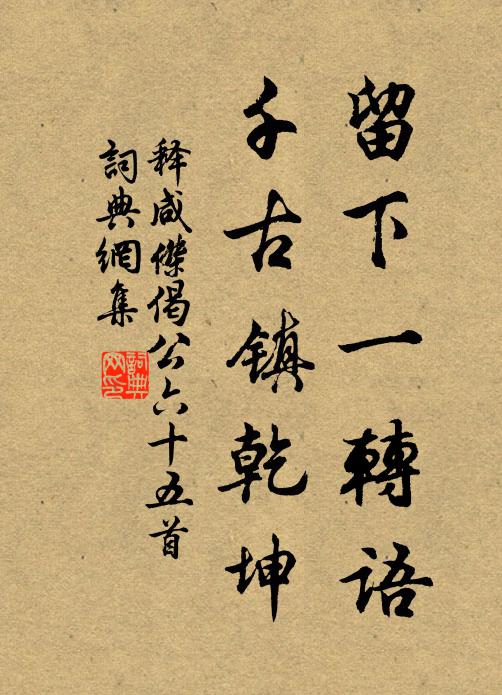 留下一轉語
千古鎮乾坤
释咸傑偈公六十五首
詞典網集
詞典网印